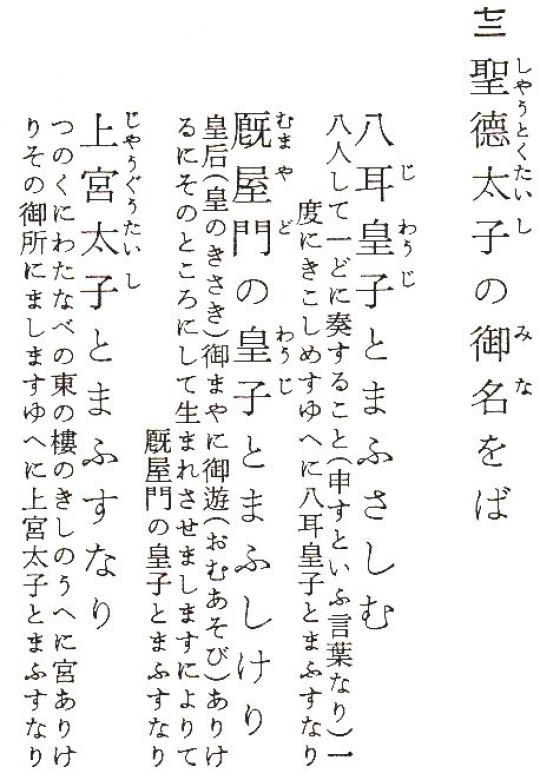 七三
聖德太子の御名をば
八耳皇子とまふさしむ
八人して一どに奏すること(申すといふ言葉なり)一
度にきこしめすゆへに八耳皇子とまふすなり
厩屋門の皇子とまふしけり
皇后(皇のきさき)御まやに御遊(おむあそび)ありけ
るにそのところにして生まれさせましますによりて
厩屋門の皇子とまふすなり
上宮太子とまふすなり
つのくにわたなべの東の樓のきしのうへに宮ありけ
りその御所にましますゆへに上宮太子とまふすなり